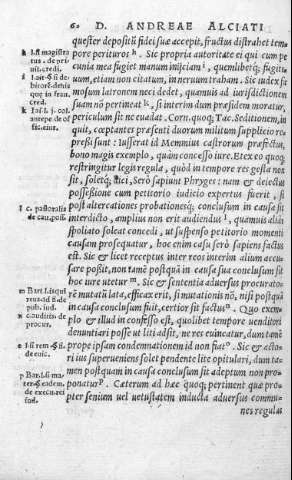 60 D. ANDREAE ALCIATI
quester depositū fidei suæ accepit, fructus distrahet tem
pore perituros h. Sic propria autoritate ei qui cum pe
cunia mea fugiet manum inijciam i, quemlibetq; fugiti
uum, etiam non citatum, in neruum traham. Sic iudex fa
mosum latronem neci dedet, quamuis ad iurisdictionem
suam nō pertineat k, si interim dum præsidem moratur,
periculum sit ne euadat. Corn. quoq; Tac. Seditionem, in
quit, cœptantes præsenti duorum militum supplicio re
pressit: iusserat id Memnius castrorum præfectus,
bono magis exemplo, quàm concesso iure. Et ex eo quoq;
restringitur legis regula, quòd in tempore res gesta non
sit, soletq; dici, Serò sapiunt Phryges: nam & delectus
possessione cum petitorio iudicio expertus fuerit, si
post altercationes probationesq; conclusum in causa sit
interdicto, amplius non erit audiendus l, quamuis aliàs
spoliato soleat concedi, ut suspenso petitorio momenti
causam prosequatur, hoc enim casu serò sapiens factus
est. Sic & licet receptus inter reos interim alium accu-
sare possit, non tamē postquā in causa sua conclusum sit
hoc iure utetur m. Sic & sententia aduersus procurato
rē mutatū lata, efficax erit, si mutationis nō, nisi postquā
in causa conclusum fuit, certior sit factus n. Quo exem-
plo & illud in confesso est, quolibet tempore uenditori
denuntiari posse ut liti adsit, ne res euincatur, dum tamē
prope ipsam condemnationem id non fiat o. Sic & acto-
ri ius superueniens solet pendente lite opitulari, dum ta-
men postquam in causa conclusum sit adeptum non pro-
ponatur p. Cæterum ad hæc quoq; pertinent quæ pro-
pter senium uel uetustatem inducta aduersus commu-
nes regulas
h l. si magistra
tus. de pri-
uil. cred.
i l. ait
debitorē. de his
quę in frau.
cred.
k
l c. pastoralis
de cau. poss.
m Bart. l. is qui
reus. ad fi. de
pub. iud.
n
procur.
o
de euic.
p Bar. l. si ma-
de execu. rei
iud.